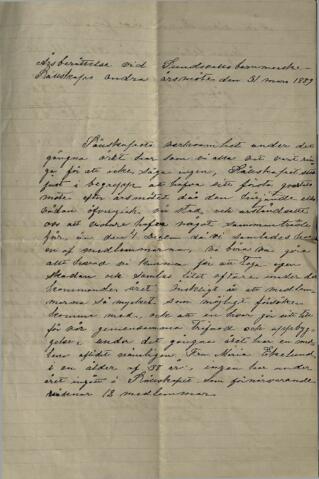 Årsberättelse vid Sundsvalls barnmorske-
Sällskaps andra årsmöte den 31 mars 1889
Sällskapets verksamhet under det
gångna året har som vi alla vet varit rin-
ga för att icke säga ingen, Sällskapet stod
just i begrepp att hafva sitt första
möte efter årsmötet då den
vådan öfvergick vår stad, och
oss att vidare hafva något sammanträde
förr än den 1 Decem. då vi samlades
af medlemmarna, nu böra vi göra
allt hvad vi kunna för att taga igen
skadan och samlas litet oftare under det
kommande året. Önskligt är att medlem-
marna så mycket som möjligt försöka
komma med, och att en hvar gör sitt till
för vår gemensamma trefnad och uppbyg-
gelse, under det gångna året har en med-
lem aflidit nämligen Fru Maria Ekelund
i en ålder af 38 år, ingen har under
året ingått i Sällskapet, som för närvarande
räknar 12 medlemmar.